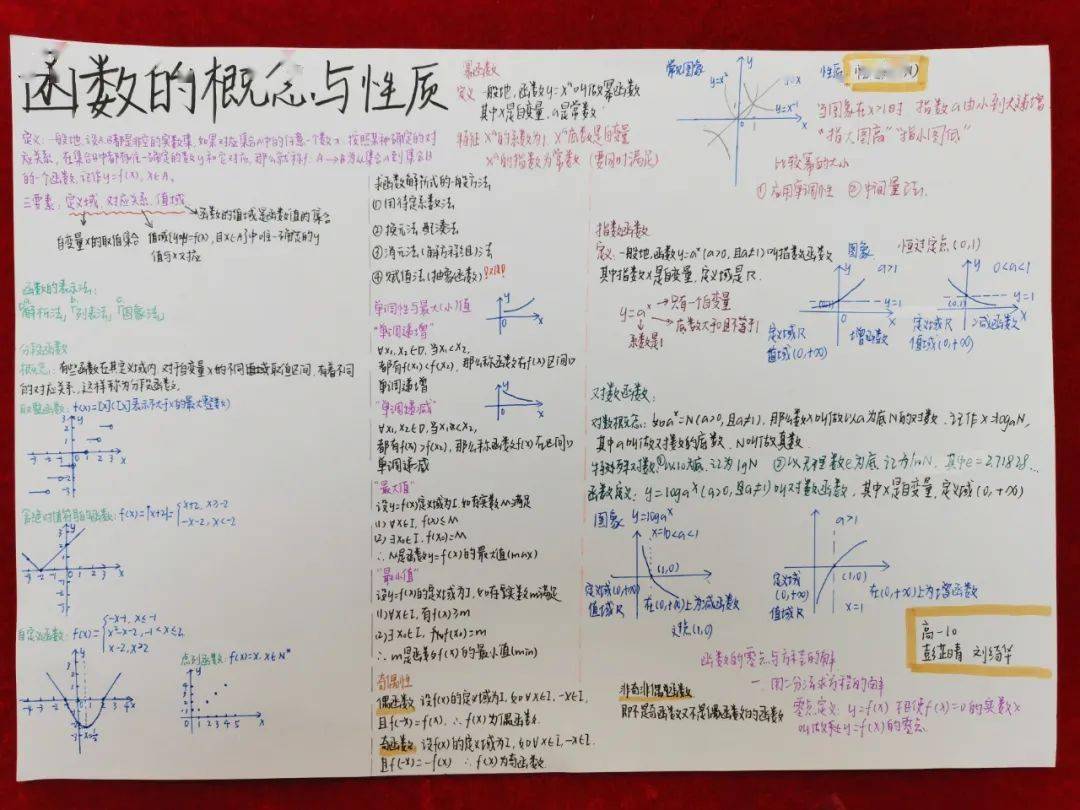 函数的概念与性质
定义:一般地,设A、B都是非空的实数集,如果对应集合A中的任意一个数x,按照某种确定的对
应关系,在集合B中都有唯一确定的数y和它对应,那么就称f:A→B为从集合A到集合B
的一个函数,记作y=f(x),x∈A。
三要素,定义域,对应关系,值域
→函数的值域是函数值的集合
自变量x的取值集合
值与x对应
函数的表示法:
a
「解析法」
b
「列表法」
c
「图象法」
分段函数
概念:有些函数在其定义域内,对于自变量x的不同取值区间,有着不同
的对应关系,这样称为分段函数。
取整函数:f(x)=[x]([x]表示不大于x的最大整数)
含绝对值符号的函数:f(x)=|x+2|={x+2, x≥-2
-x-2, x<-2
自定义函数:f(x)={-x-1, x≤-1
x²-x-2, -1<x≤2
x-2, x>2
x=1/2
点列函数:f(x)=x, x∈N*
求函数解析式的一般方法
①用待定系数法
②换元法,配凑法
③消元法(解方程组)法
④赋值法(抽象函数)
单调性与最大(小)值
"单调递增"
∀x₁,x₂∈D,当x₁<x₂,
都有f(x₁)<f(x₂),那么称函数在f(x)区间D
单调递增
"单调递减"
∀x₁,x₂∈D,当x₁<x₂,
都有f(x₁)>f(x₂),那么称函数f(x)在区间D
单调递减
"最大值"
设y=f(x)定义域为I,如有实数M满足
(1)∀x∈I, f(x)≤M
(2)∃x₀∈I, f(x₀)=M
∴M是函数y=f(x)的最大值(max)
"最小值"
设y=f(x)的定义域为I,如存在实数m满足
(1)∀x∈I,有f(x)≥m
(2)∃x₀∈I, f(x₀)=m
∴m是函数f(x)的最小值(min)
奇偶性
偶函数 设f(x)的定义域为I,如∀x∈I,-x∈I,
且f(-x)=f(x),∴f(x)为偶函数.
奇函数 设f(x)的定义域为I,如∀x∈I,-x∈I.
且f(-x)=-f(x) ∴f(x)为奇函数.
幂函数
定义 一般地,函数y=xᵅ叫做幂函数
其中x是自变量,α是常数
特征 xᵅ的系数为1,xᵅ底数是自变量
xᵅ的指数为常数(要同时满足)
常见图象
y=x²
y=x
y=x⁻¹
性质:
当图象在x>1时 指数α由小到大递增
"指大图高" "指小图低"
比较幂的大小
①应用单调性 ②中间量法.
指数函数
定义:一般地,函数y=aˣ(a>0,且a≠1)叫指数函数
其中指数x是自变量,定义域是R.
y=aˣ
→只有一个自变量
→底数大于0且不等于1
系数是1
图象 恒过定点(0,1)
a>1
(0,1)
y=1
定义域R
值域(0,+∞)
增函数
0<a<1
(0,1)
y=1
定义域R
值域(0,+∞)
减函数
对数函数:
对数概念:如aˣ=N(a>0,且a≠1),那么数x叫做以a为底N的对数,记作x=logₐN,
其中a叫做对数的底数,N叫做真数.
特殊对数①以10为底,记为lgN ②以无理数e为底,记为lnN,其中e=2.71828…
函数定义:y=logₐx(a>0,且a≠1)叫对数函数,其中x是自变量,定义域(0,+∞)
图象 y=logₐx
0<a<1
(1,0)
定义域(0,+∞)
值域R
在(0,+∞)上为减函数
定点(1,0)
a>1
(1,0)
x=1
定义域
(0,+∞)
值域R
在(0,+∞)上为增函数
高一10
函数的零点与方程的解
一、用二分法求方程的解
零点定义:y=f(x) 把使f(x)=0的实数x
叫做y=f(x)的零点.
非奇非偶函数
即不是奇函数又不是偶函数的函数